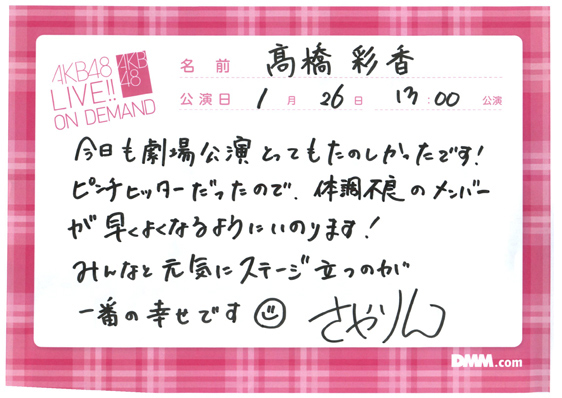 AKB48
LIVE!!
ON DEMAND
AKB
48
名前 髙橋彩香
公演日 1月26日 13:00 公演
今日も劇場公演とってもたのしかったです!
ピンチヒッターだったので、体調不良のメンバー
が早くよくなるようにいのります!
みんなと元気にステージ立つのが
一番の幸せです
さやりん
DMM.com